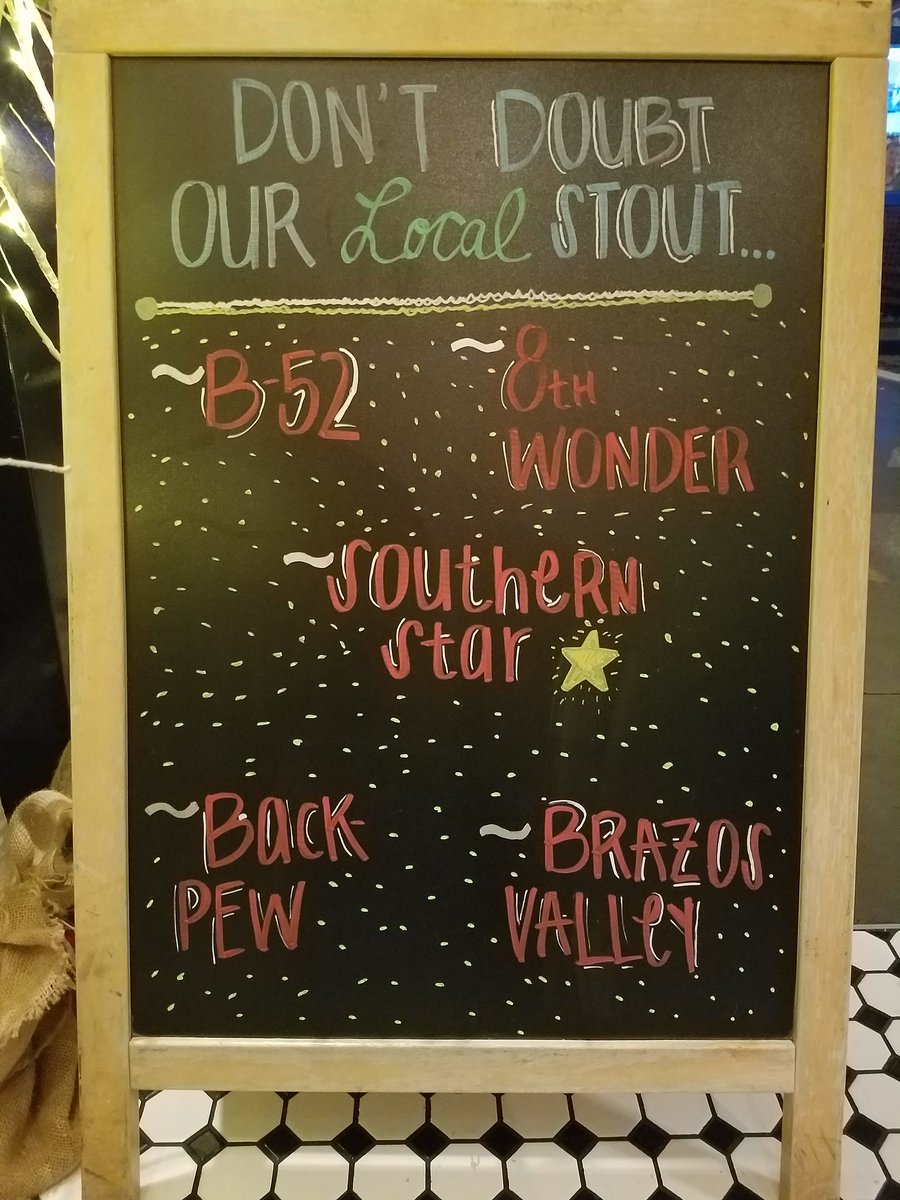 DON'T DOUBT
OUR Local STOUT...
~B-52
~8TH
WONDER
~SOUthERN
Star
~Back-
PEW
~BRAZOS
VALLeY